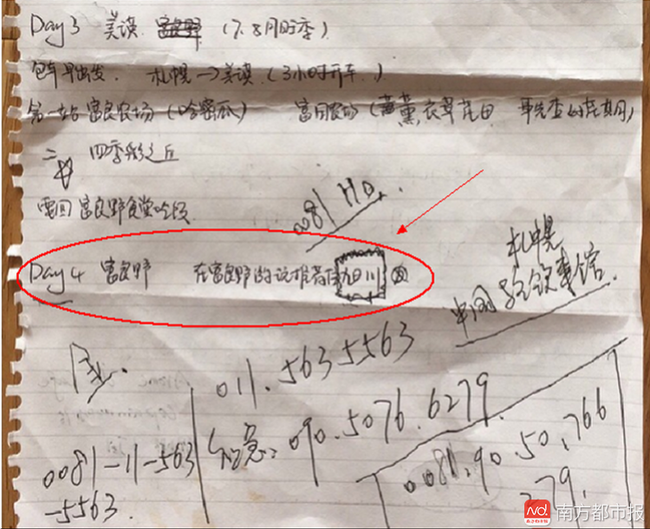 Day 3 美瑛 富良野 (7.8月旺季)
包车早出发. 札幌→美瑛 (3小时开车.)
第一站 富良农场 (哈密瓜) 富田农场 (薰衣草花田 事先查好花期)
二 四季彩之丘
要回富良野食堂吃饭
0081 HD.
Day 4 富良野 在富良野的话推荐住 旭川
札幌
中国总领事馆
011.563 5563
0081-11-563
-5563.
紧急: 090.5076.6279
0081.90.50.766
279.
南方都市报